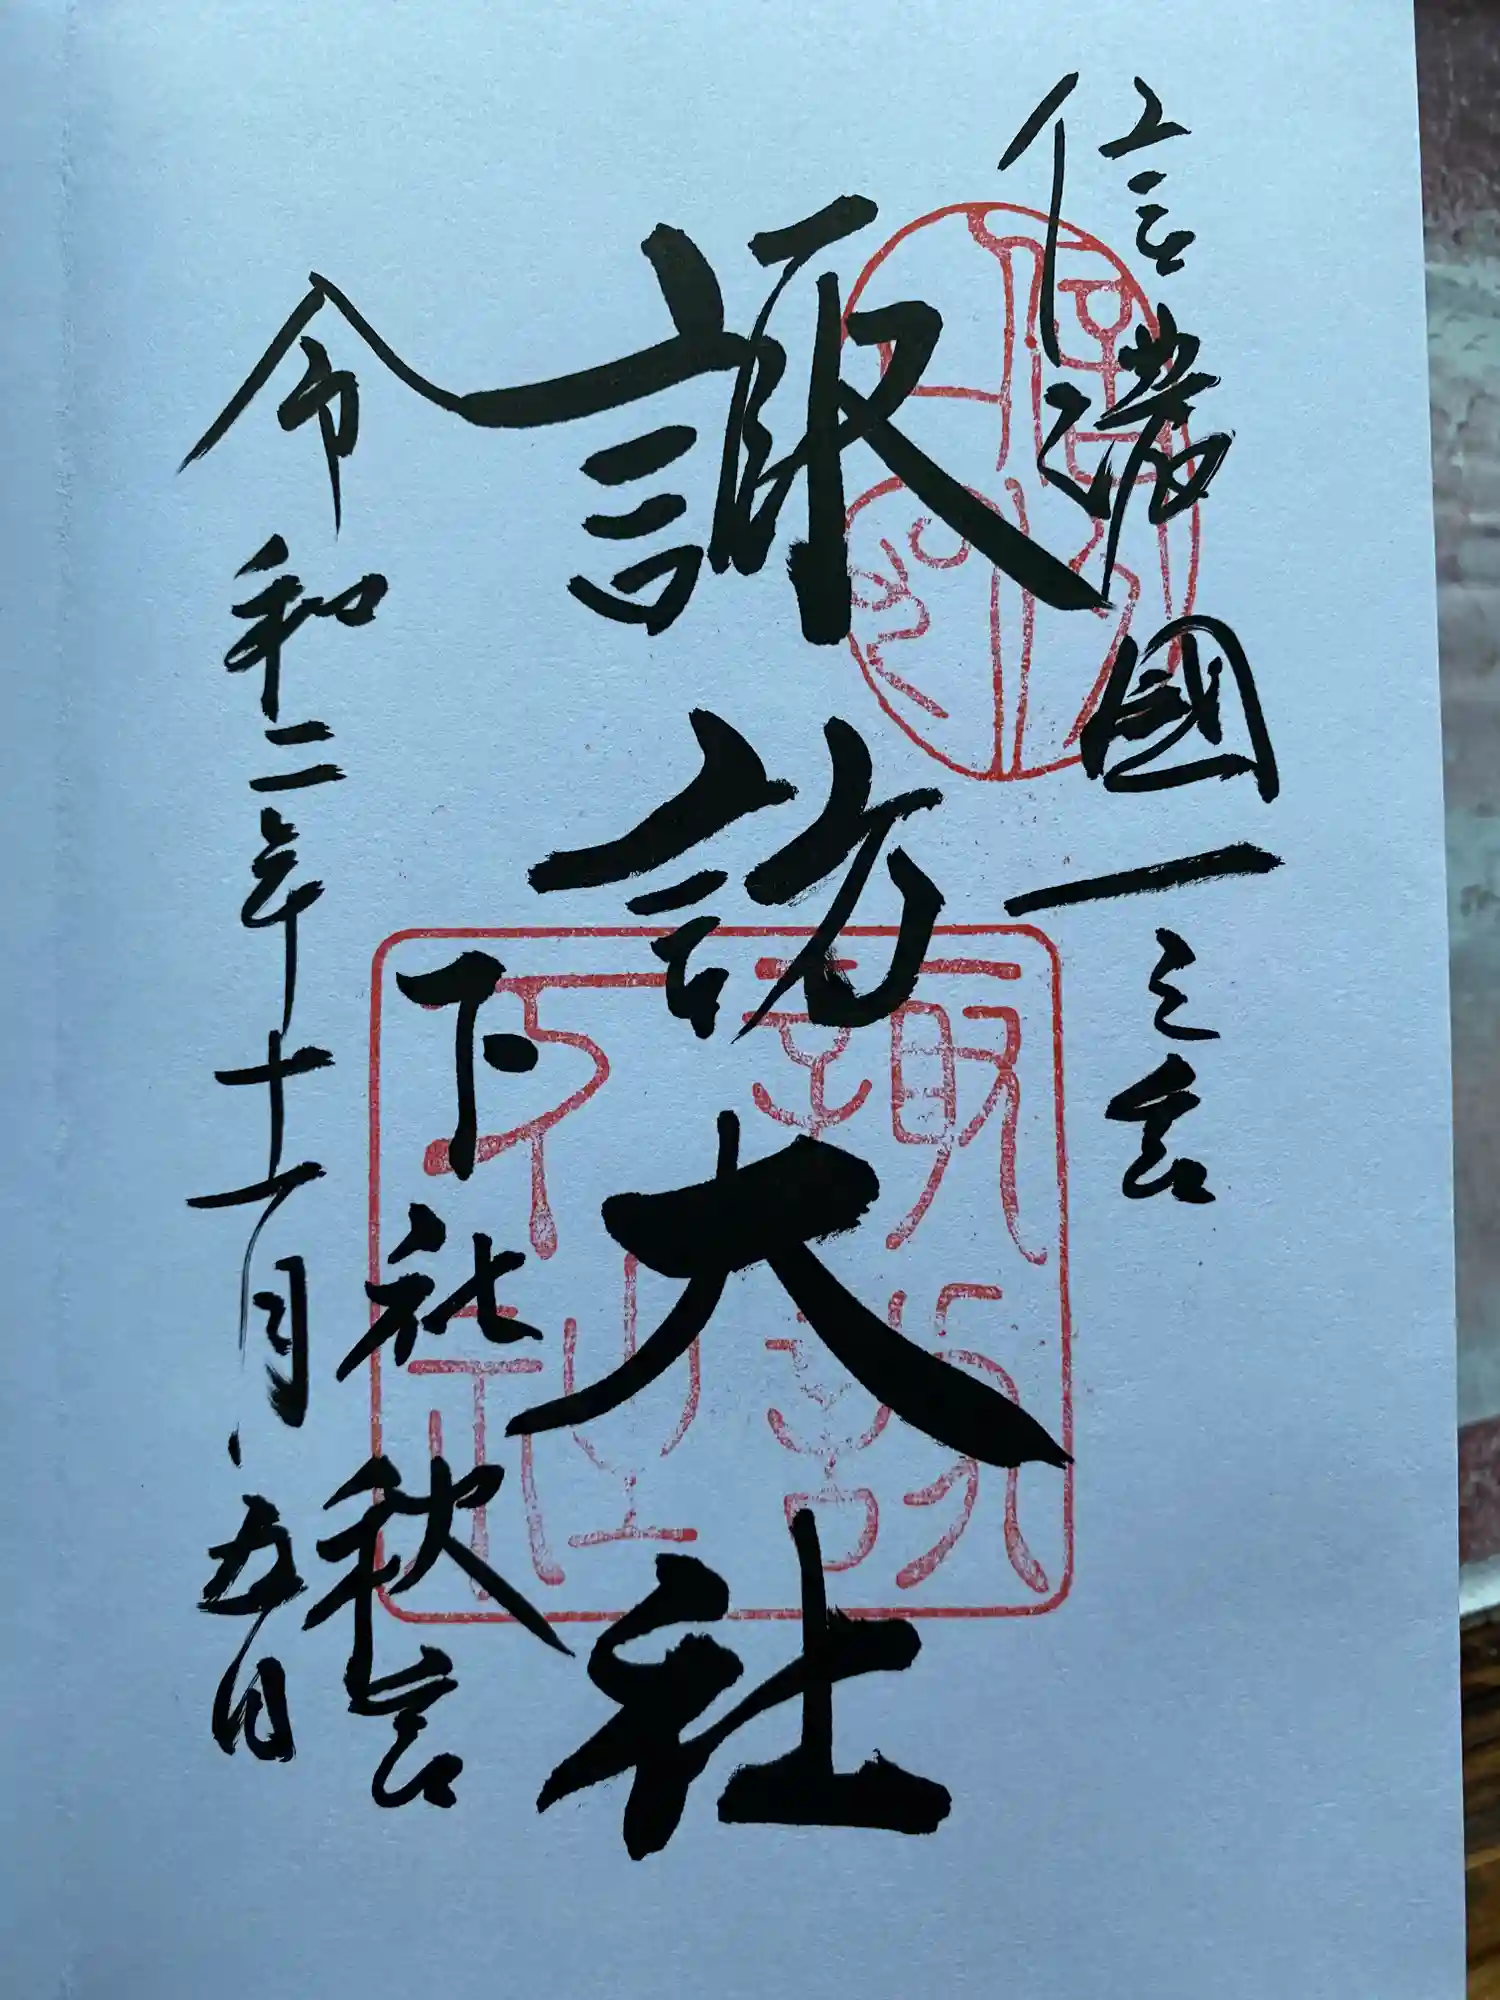 信濃國一之宮
諏訪大社
下社秋宮
令和二年十一月五日